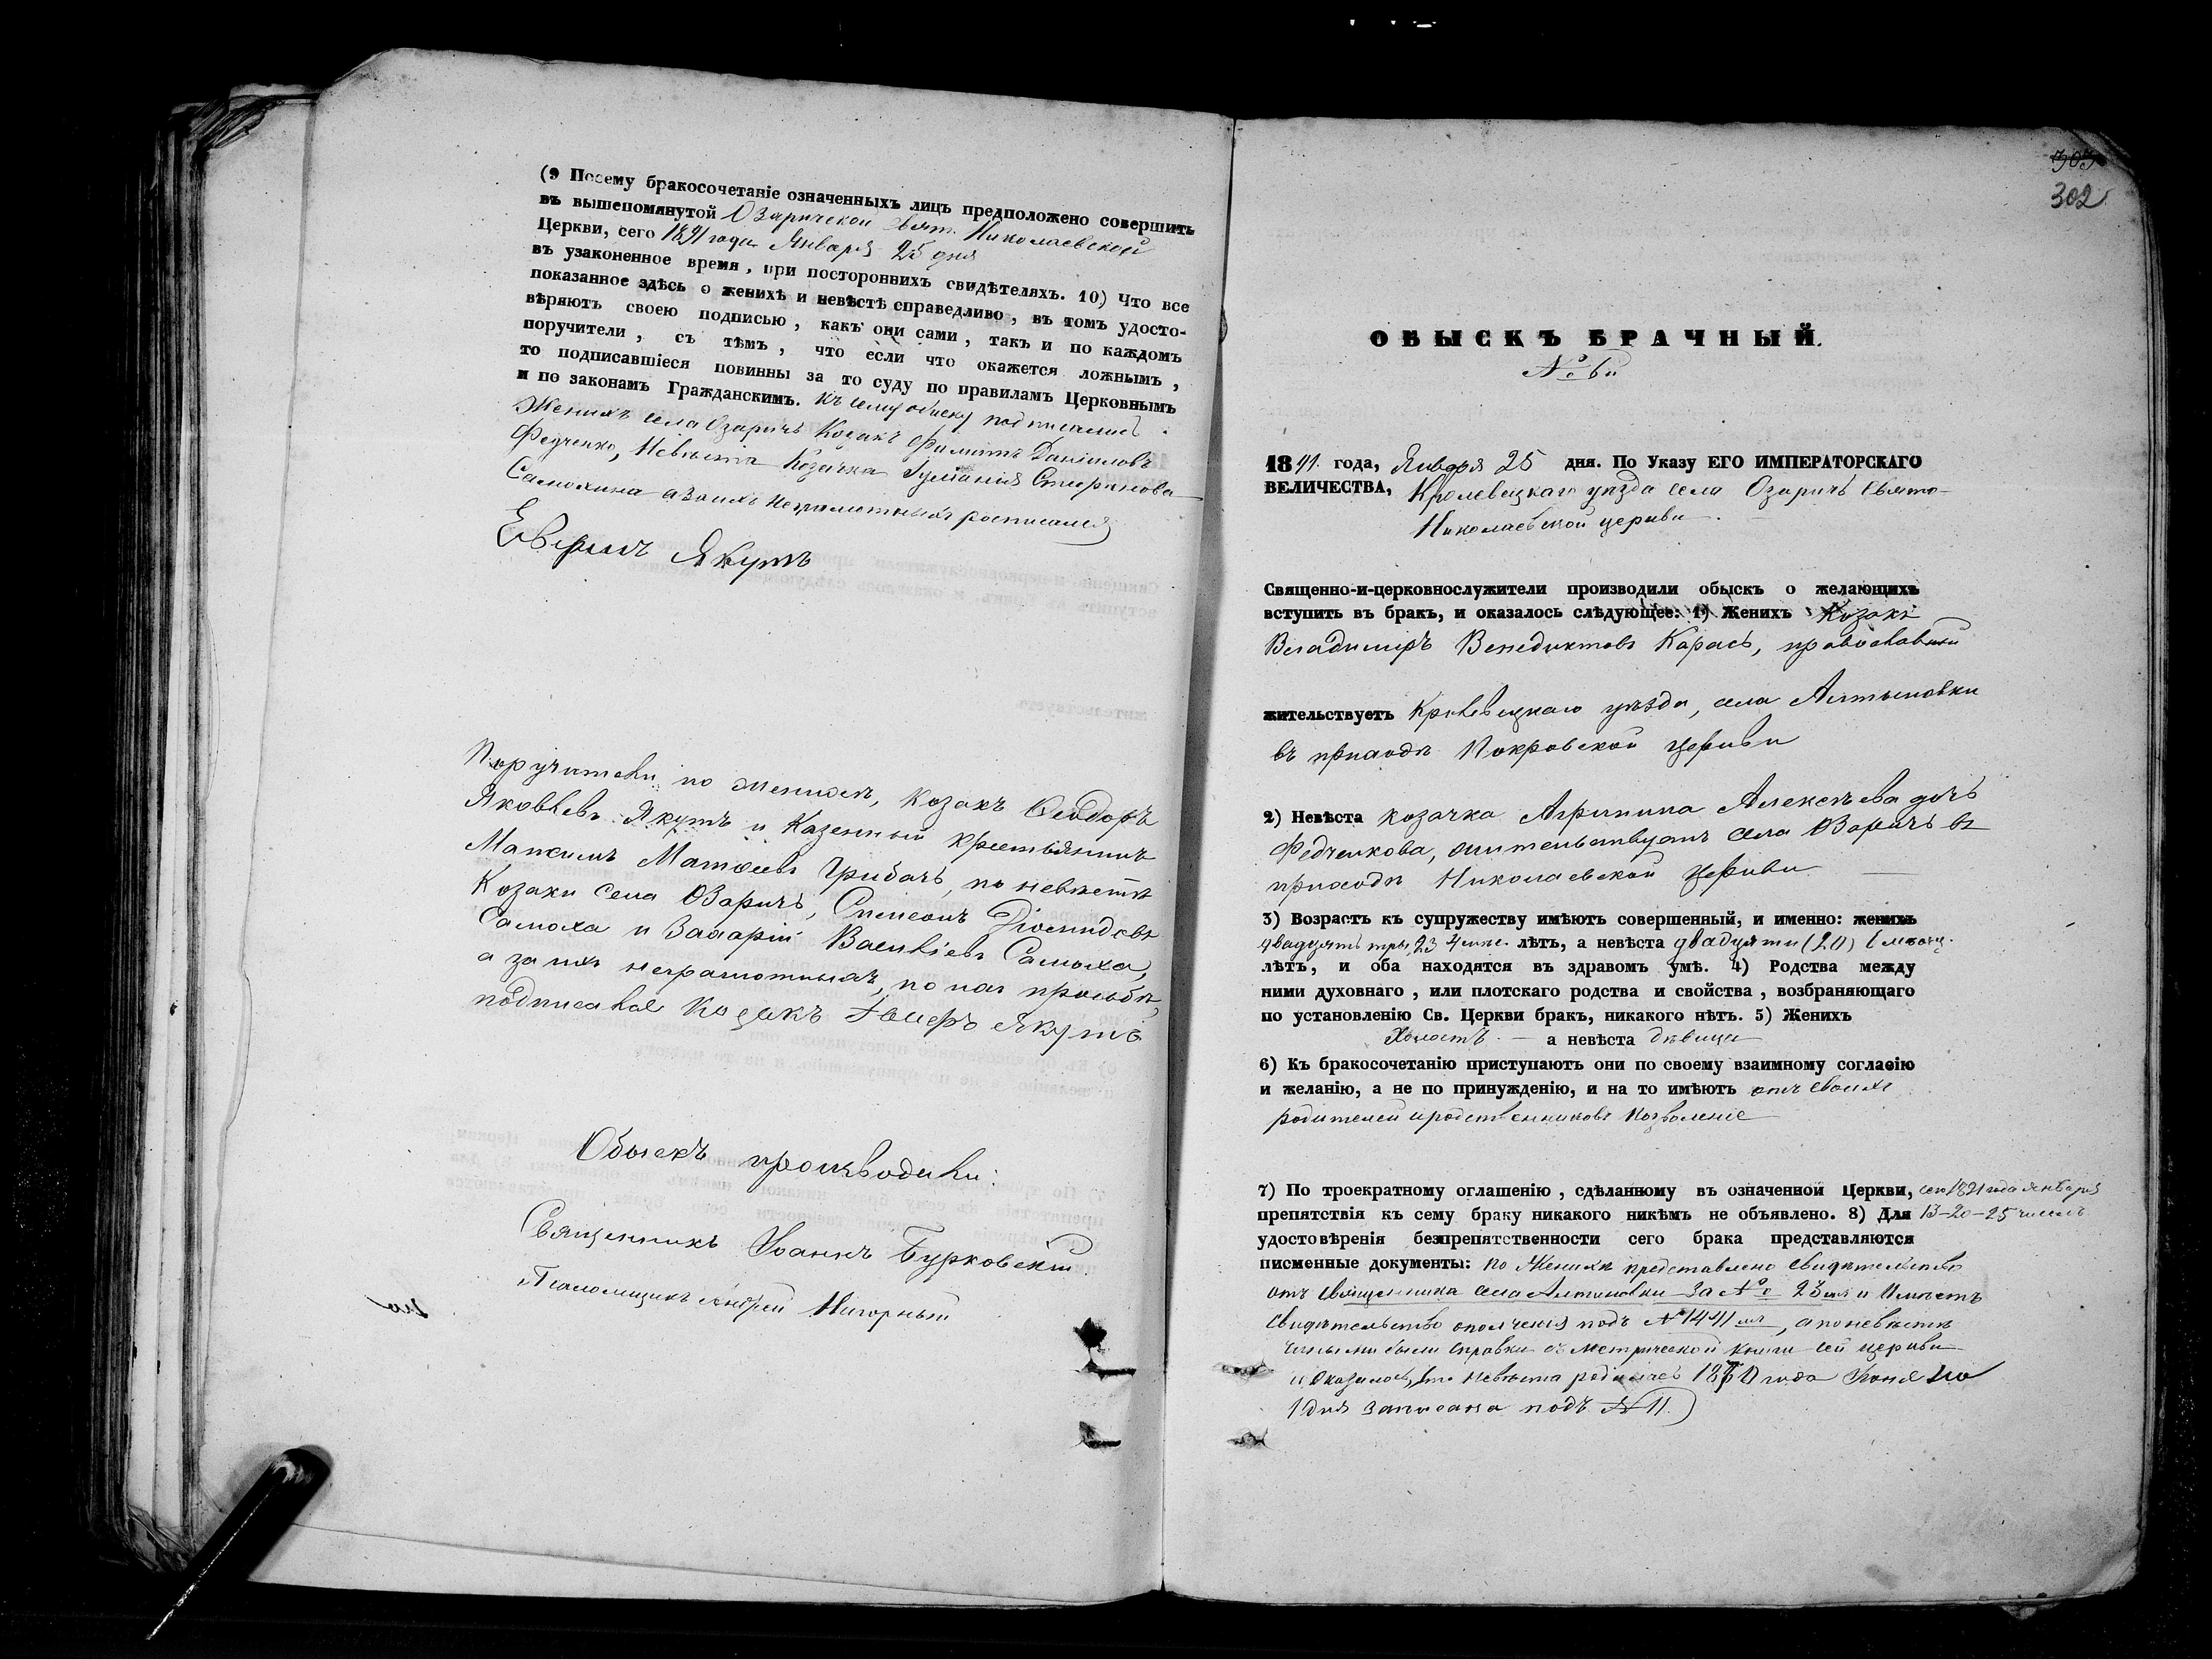 (9 Посему бракосочетаніе означенныхъ лицъ предположено совершить
въ вышепомянутой Озаричской Свят. Николаевской
Церкви, сего 1891 года Января 25 дня
въ узаконенное время, при постороннихъ свидѣтеляхъ. 10) Что все
показанное здѣсь о женихѣ и невѣстѣ справедливо, въ томъ удосто-
вѣряютъ своею подписью, какъ они сами, такъ и по каждомъ
поручители, съ тѣмъ, что если что окажется ложнымъ,
то подписавшіеся повинны за то суду по правиламъ Церковнымъ
и по законамъ Гражданскимъ. Къ сему обыску подписались
Женихъ села Озаричъ Козакъ Филиппъ Даніиловъ
Федченко, Невѣста Козачка Спиридонова
Самохина а за ихъ неграмотныхъ росписался
Якутъ
Поручители по женихѣ, козакъ Ѳеодоръ
Яковлевъ Якутъ и Казенный крестьянинъ
Максимъ Матѳеевъ Грибачъ, по невѣстѣ
Козаки села Озаричъ, Симеонъ Діомидовъ
Самоха и Захарій Васильевъ Самоха,
а за ихъ неграмотныхъ, по ихъ просьбѣ,
подписался Козакъ Якутъ
Обыскъ производили:
Священникъ Іоаннъ Бурковскій
Псаломщикъ Андрей Нигорный
303
302
ОБЫСКЪ БРАЧНЫЙ.
№ 6й
1891 года, Января 25 дня. По Указу ЕГО ИМПЕРАТОРСКАГО
ВЕЛИЧЕСТВА, Кролевецкаго уѣзда села Озаричъ Свято-
Николаевской церкви.
Священно-и-церковнослужители производили обыскъ о желающихъ
вступить въ бракъ, и оказалось слѣдующее: 1) Женихъ Козакъ
Владимиръ Венедиктовъ Карась, православный
жительствуетъ Кролевецкаго уѣзда, села Алтыновки
въ приходѣ Покровской церкви
2) Невѣста козачка Агрипина Алексѣева дочь
Федченкова, жительствуетъ села Озаричъ въ
приходѣ Николаевской церкви
3) Возрастъ къ супружеству имѣютъ совершенный, и именно: женихъ
двадцять три, 23 лѣтъ, а невѣста двадцяти (20) 6 мѣсяц.
лѣтъ, и оба находятся въ здравомъ умѣ. 4) Родства между
ними духовнаго, или плотскаго родства и свойства, возбраняющаго
по установленію Св. Церкви бракъ, никакого нѣтъ. 5) Женихъ
Холостъ а невѣста дѣвица
6) Къ бракосочетанію приступаютъ они по своему взаимному согласію
и желанію, а не по принужденію, и на то имѣютъ отъ своихъ
родителей и родственниковъ позволеніе
7) По троекратному оглашенію, сдѣланному въ означенной Церкви, сего 1891 года Января
препятствія къ сему браку никакого никѣмъ не объявлено. 8) Для 13-20-25 числъ
удостовѣренія безпрепятственности сего брака представляются
писменные документы: по Женихѣ представлено свидѣтельство
отъ священника села Алтиновки за № 23 и Имѣетъ
свидѣтельство ополченія подъ № , а по невѣстѣ
были справки съ Метрической книги сей церкви
и Оказалось, что Невѣста родилась 1870 года Іюня
1 дня записана подъ № 11.